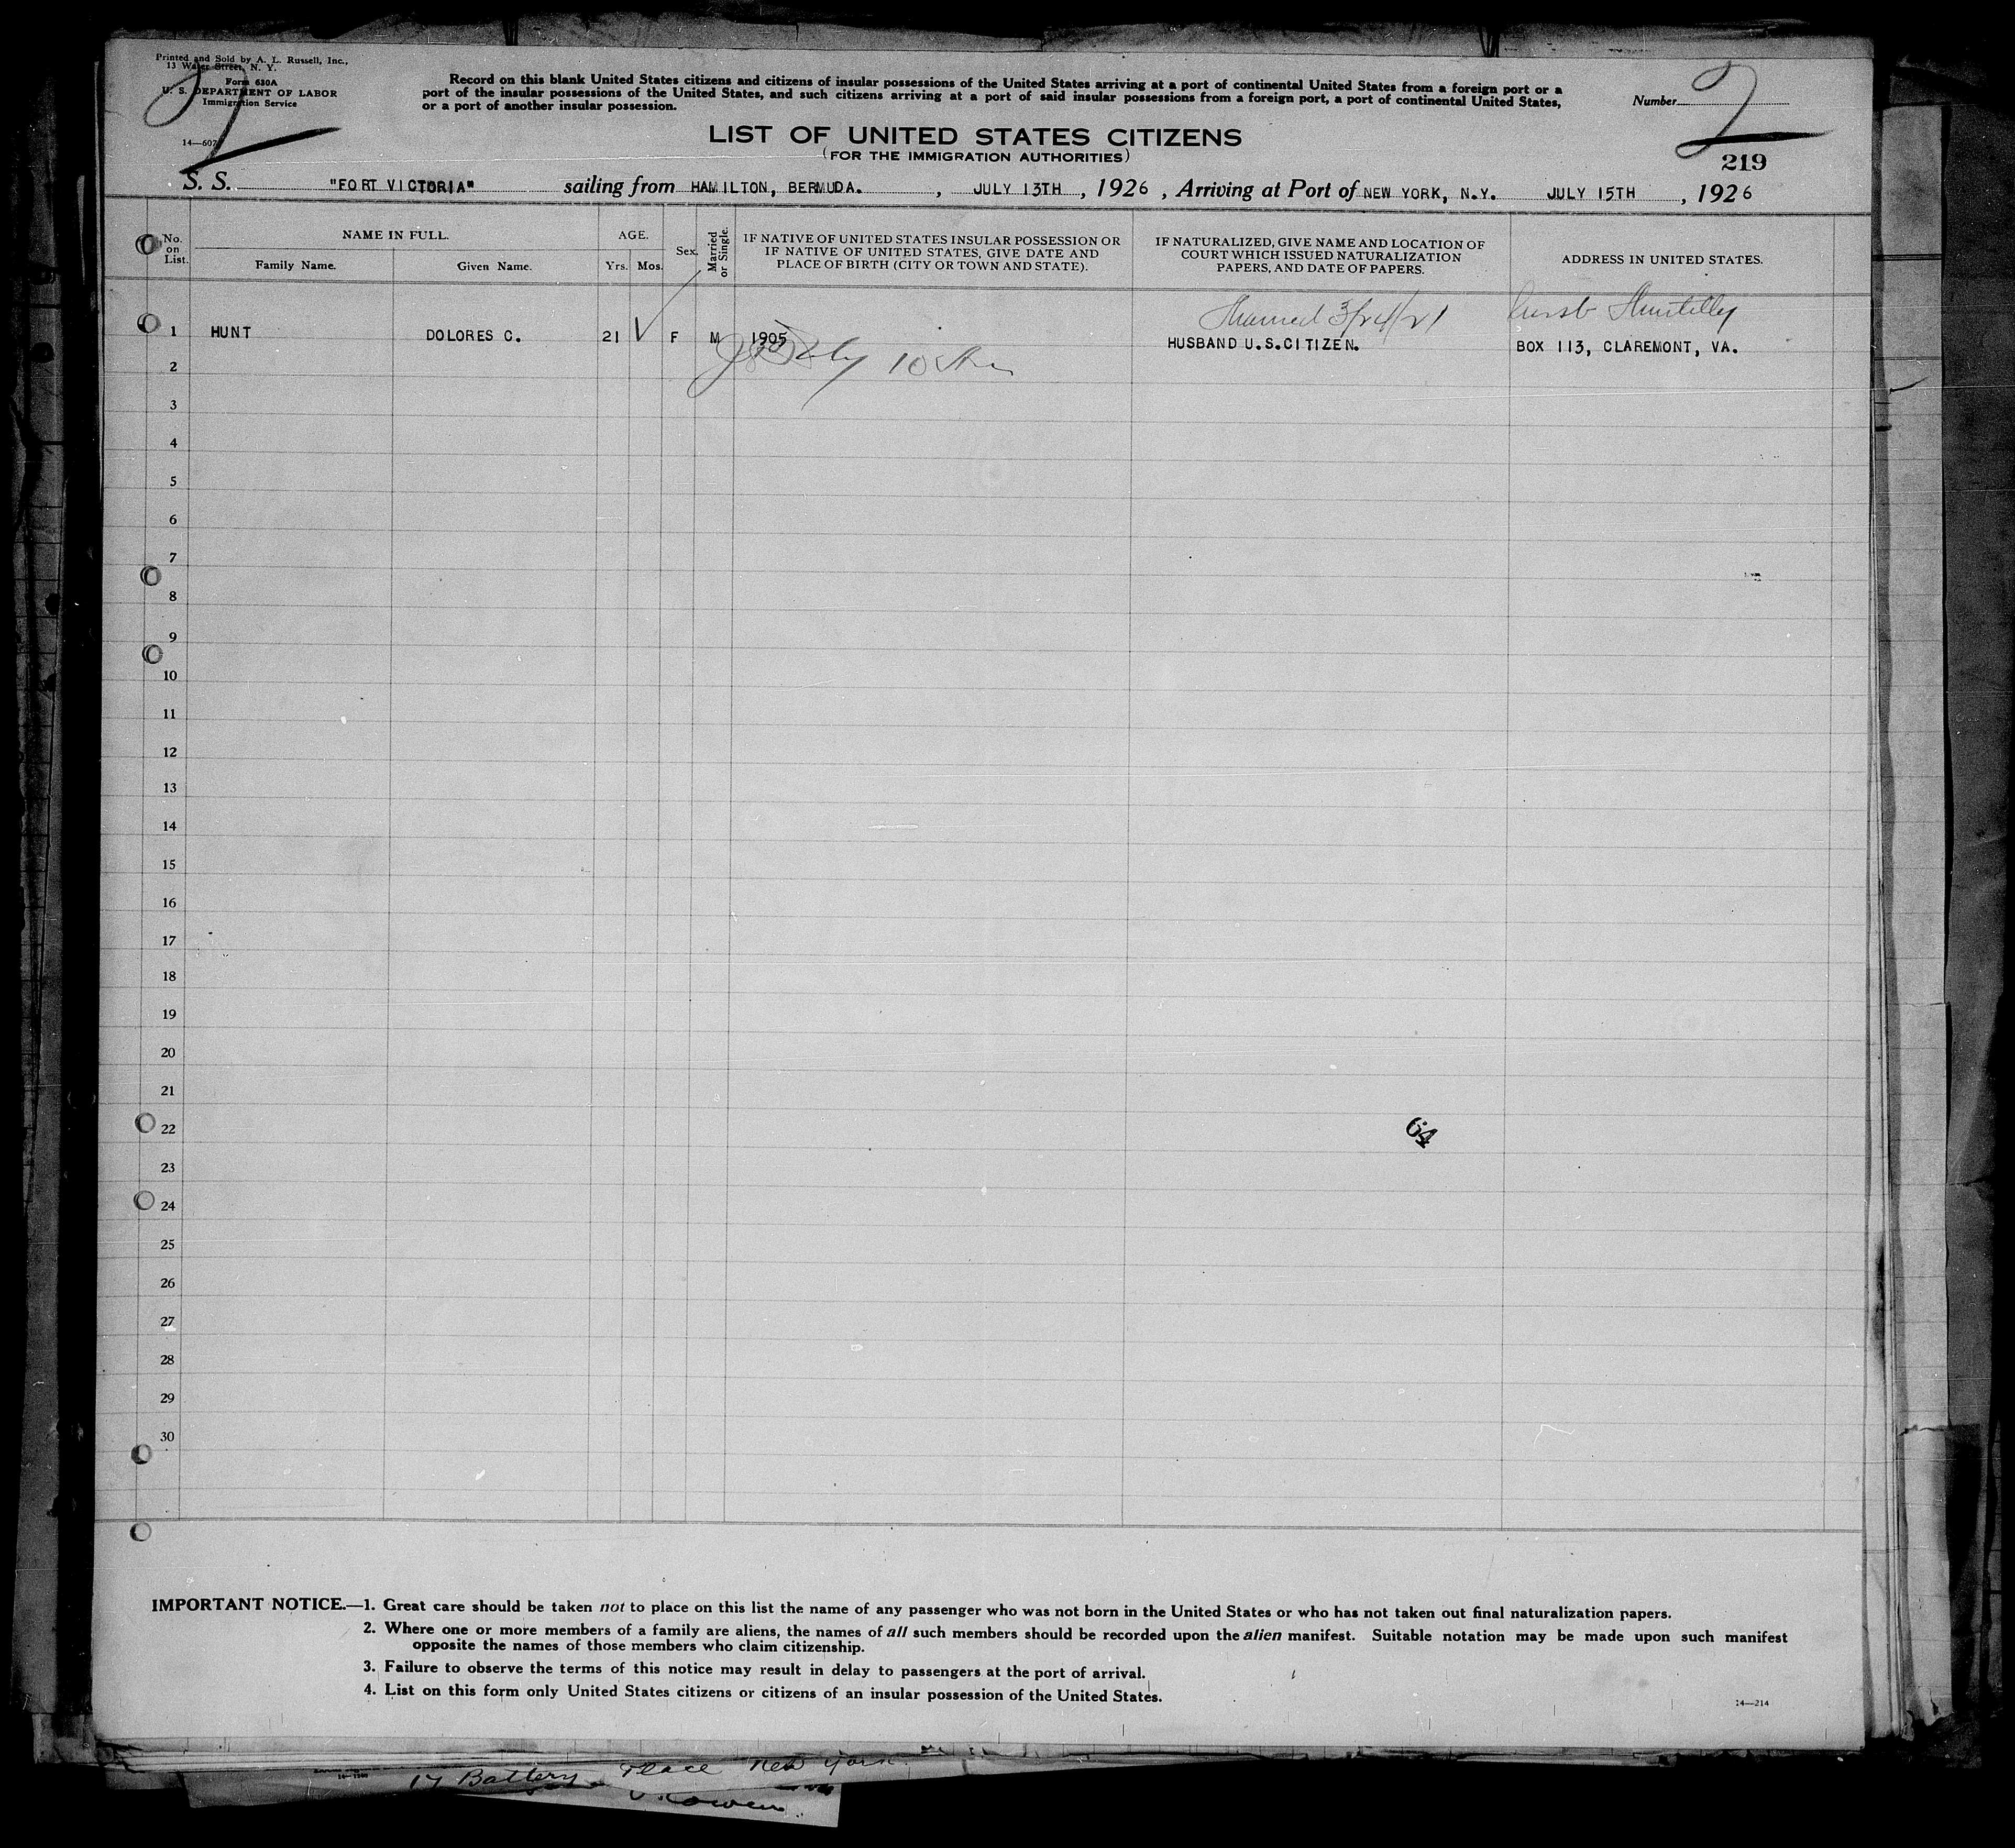 Printed and Sold by A. L. Russell, Inc.,
13 Water Street, N. Y.
Form 630A
U. S. DEPARTMENT OF LABOR
Immigration Service
14—607
2
Record on this blank United States citizens and citizens of insular possessions of the United States arriving at a port of continental United States from a foreign port or a
port of the insular possessions of the United States, and such citizens arriving at a port of said insular possessions from a foreign port, a port of continental United States,
or a port of another insular possession.
Number 2
LIST OF UNITED STATES CITIZENS
(FOR THE IMMIGRATION AUTHORITIES)
219
S. S. "FORT VICTORIA" sailing from HAMILTON, BERMUDA. , JULY 13TH , 1926 , Arriving at Port of NEW YORK, N.Y. JULY 15TH , 1926
No. on List.
NAME IN FULL.
Family Name.
Given Name.
AGE.
Yrs.
Mos.
Sex.
Married or Single.
IF NATIVE OF UNITED STATES INSULAR POSSESSION OR
IF NATIVE OF UNITED STATES, GIVE DATE AND
PLACE OF BIRTH (CITY OR TOWN AND STATE).
IF NATURALIZED, GIVE NAME AND LOCATION OF
COURT WHICH ISSUED NATURALIZATION
PAPERS, AND DATE OF PAPERS.
ADDRESS IN UNITED STATES.
Married 3/24/21
1 HUNT DOLORES C. 21 F M 1905 HUSBAND U.S.CITIZEN. BOX 113, CLAREMONT, VA.
2
3
4
5
6
7
8
9
10
11
12
13
14
15
16
17
18
19
20
21
22
64
23
24
25
26
27
28
29
30
IMPORTANT NOTICE.—1. Great care should be taken not to place on this list the name of any passenger who was not born in the United States or who has not taken out final naturalization papers.
2. Where one or more members of a family are aliens, the names of all such members should be recorded upon the alien manifest. Suitable notation may be made upon such manifest
opposite the names of those members who claim citizenship.
3. Failure to observe the terms of this notice may result in delay to passengers at the port of arrival.
4. List on this form only United States citizens or citizens of an insular possession of the United States.
14—214
17 Battery Place New York